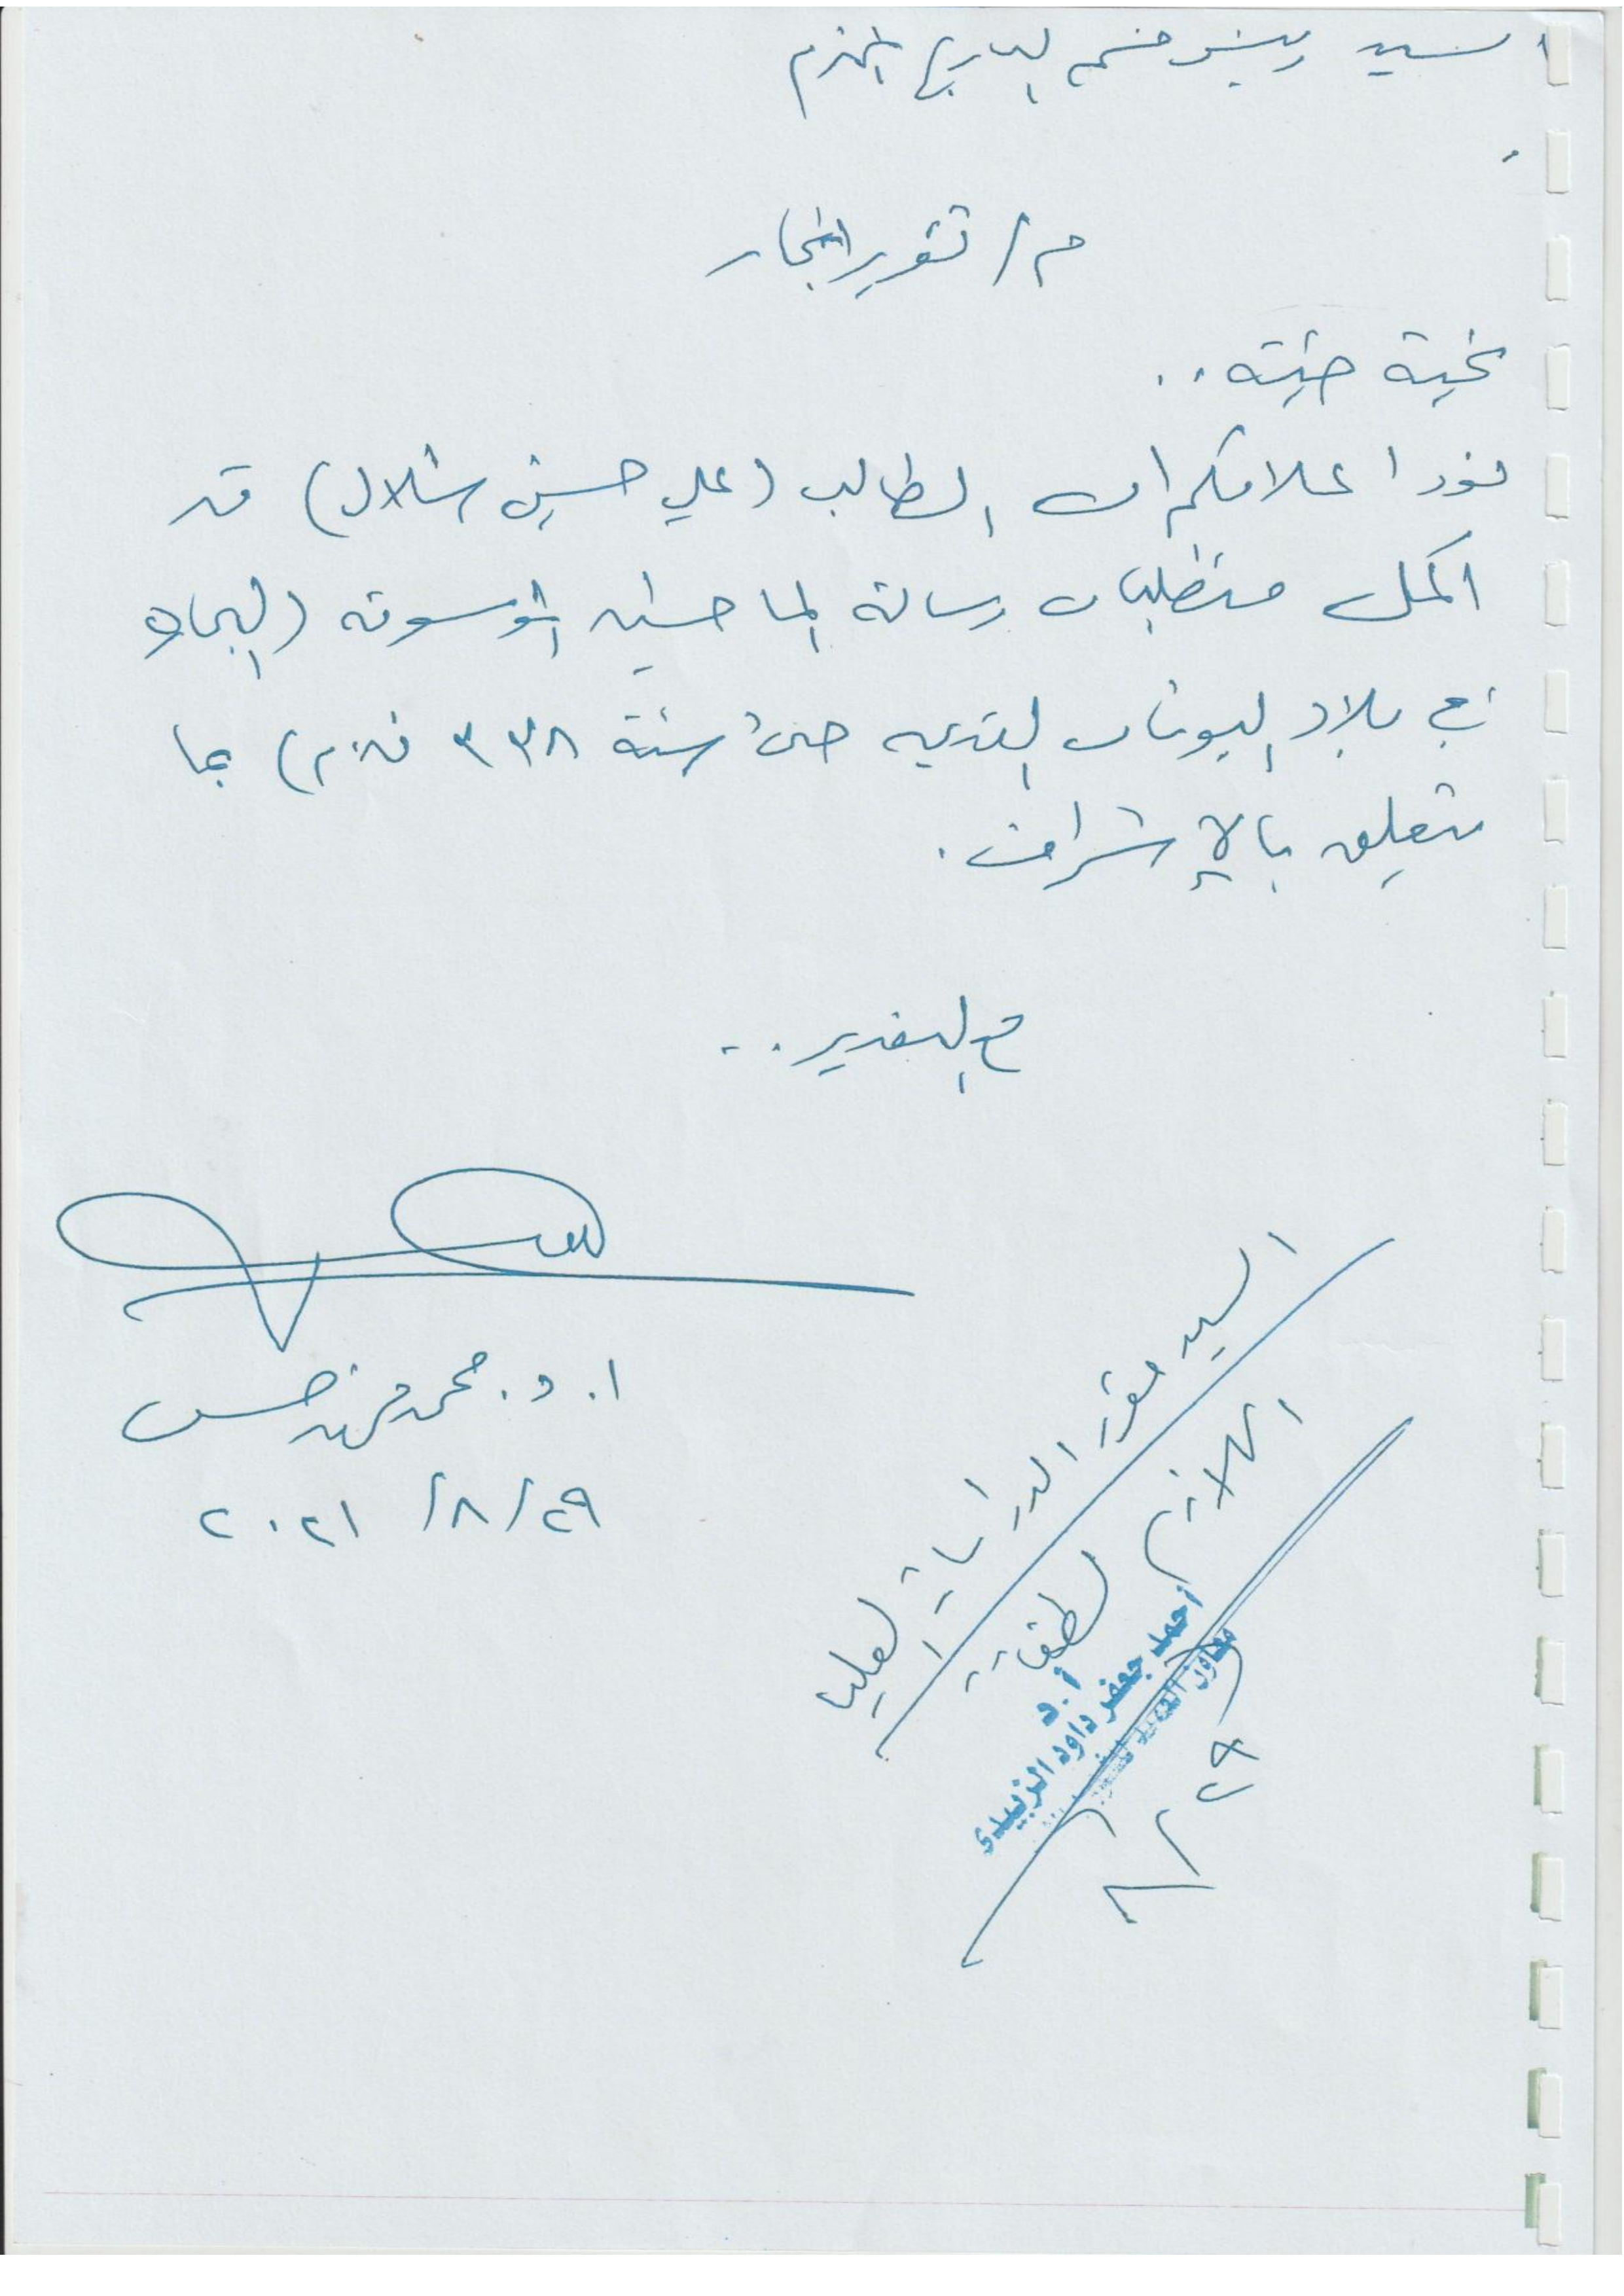 السيد رئيس قسم التاريخ المحترم
م / تقرير انجاز
تحية طيبة ..
نود اعلامكم ان الطالب (علي حسين شلال) قد
اكمل متطلبات رسالة الماجستير الموسومة (العبيد
في بلاد اليونان القديمه حتى سنة ٣٣٨ ق.م) بما
يتعلق بالإشراف .
مع التقدير ..
ا. د. محمد فهد حسين
٢٩ / ٨ / ٢٠٢١
السيد مقرر الدراسات العليا
اللازم لطفا
أ.د
احمد جعفر داود الزبيدي
معاون العميد
٨/٢٩